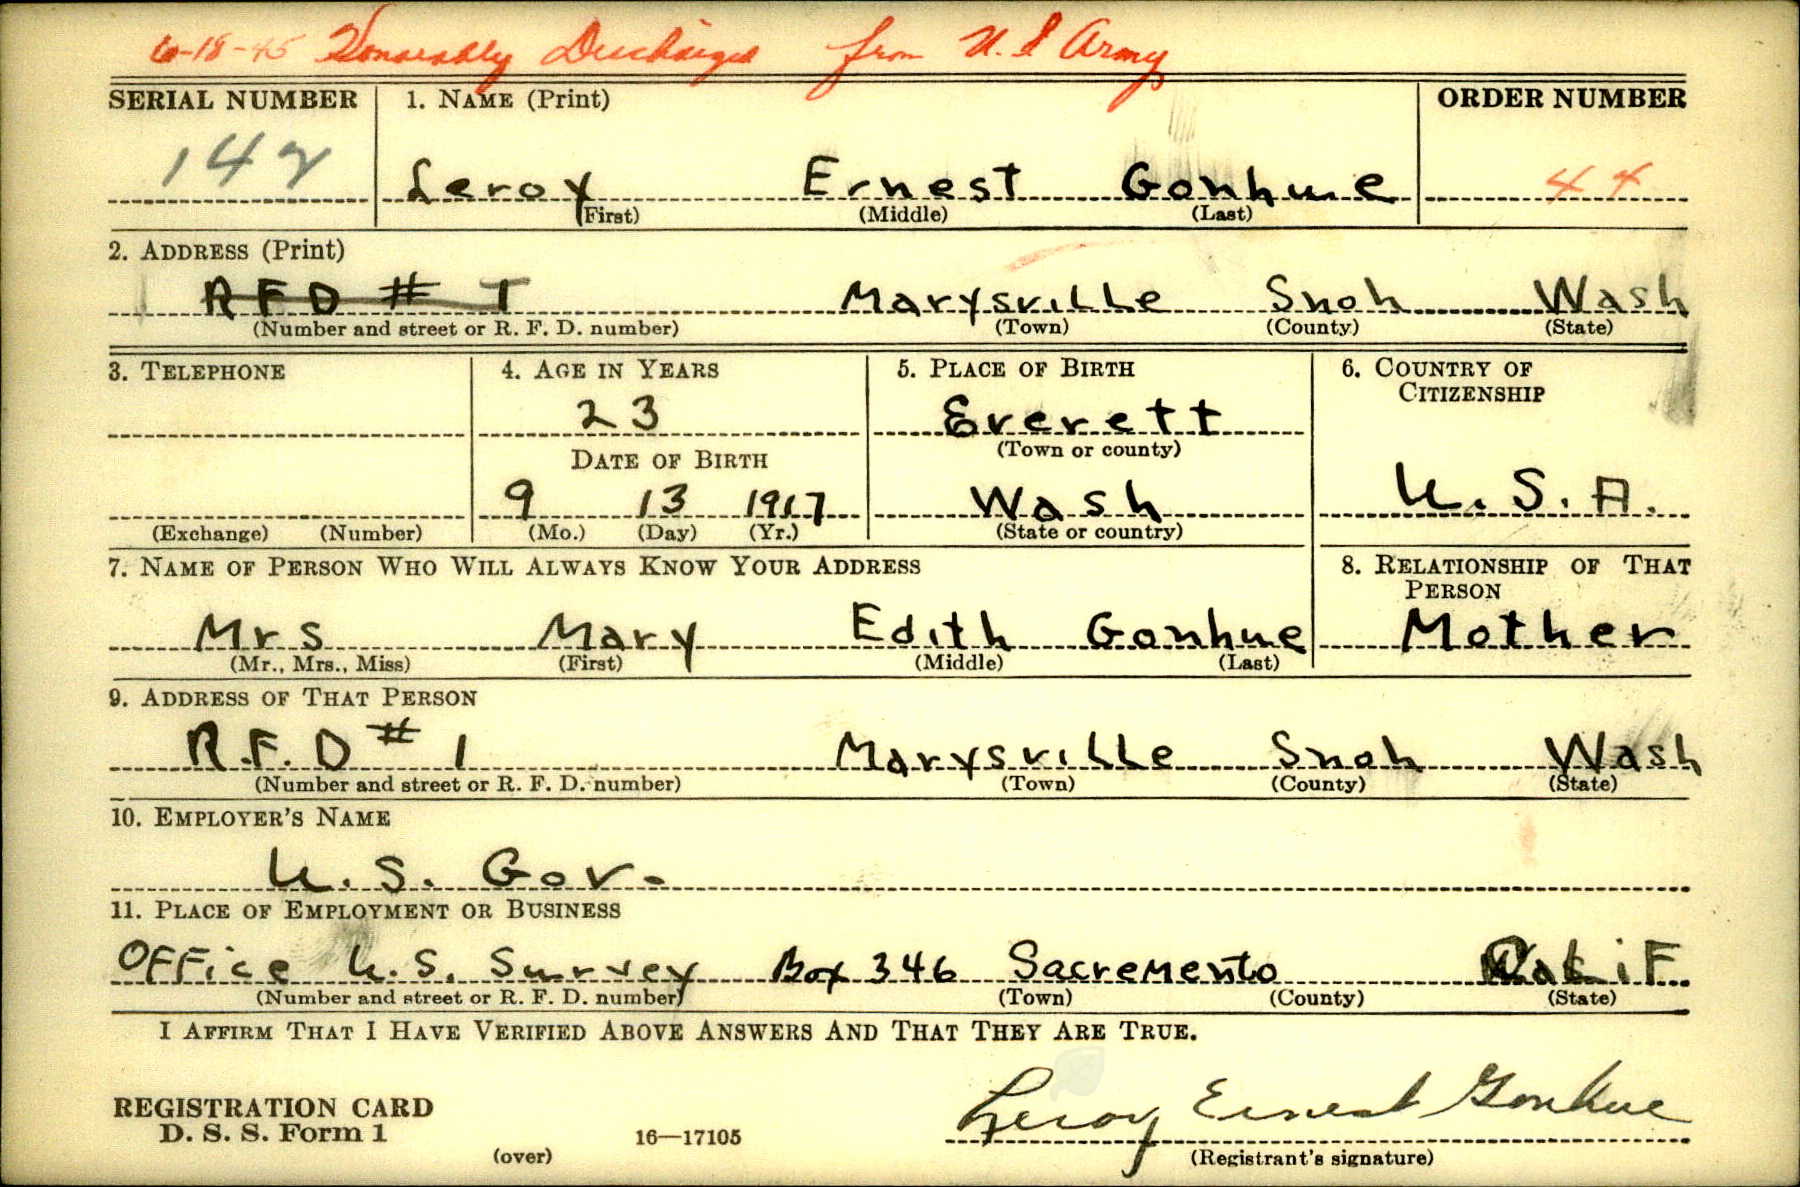 6-18-45 Honorably Discharged from U.S Army
SERIAL NUMBER 1. NAME (Print) ORDER NUMBER
142 Leroy Ernest Gonhue 44
(First) (Middle) (Last)
2. ADDRESS (Print)
RFD # 1 Marysville Snoh Wash
(Number and street or R. F. D. number) (Town) (County) (State)
3. TELEPHONE 4. AGE IN YEARS 5. PLACE OF BIRTH 6. COUNTRY OF
CITIZENSHIP
23 Everett
(Town or county)
DATE OF BIRTH
9 13 1917 Wash U.S.A.
(Exchange) (Number) (Mo.) (Day) (Yr.) (State or country)
7. NAME OF PERSON WHO WILL ALWAYS KNOW YOUR ADDRESS 8. RELATIONSHIP OF THAT
PERSON
Mrs Mary Edith Gonhue Mother
(Mr., Mrs., Miss) (First) (Middle) (Last)
9. ADDRESS OF THAT PERSON
R.F.D # 1 Marysville Snoh Wash
(Number and street or R. F. D. number) (Town) (County) (State)
10. EMPLOYER'S NAME
U.S. Gov.
11. PLACE OF EMPLOYMENT OR BUSINESS
Office U.S. Survey Box 346 Sacremento Calif
(Number and street or R. F. D. number) (Town) (County) (State)
I AFFIRM THAT I HAVE VERIFIED ABOVE ANSWERS AND THAT THEY ARE TRUE.
REGISTRATION CARD Leroy Ernest Gonhue
D. S. S. Form 1 16—17105
(over) (Registrant's signature)